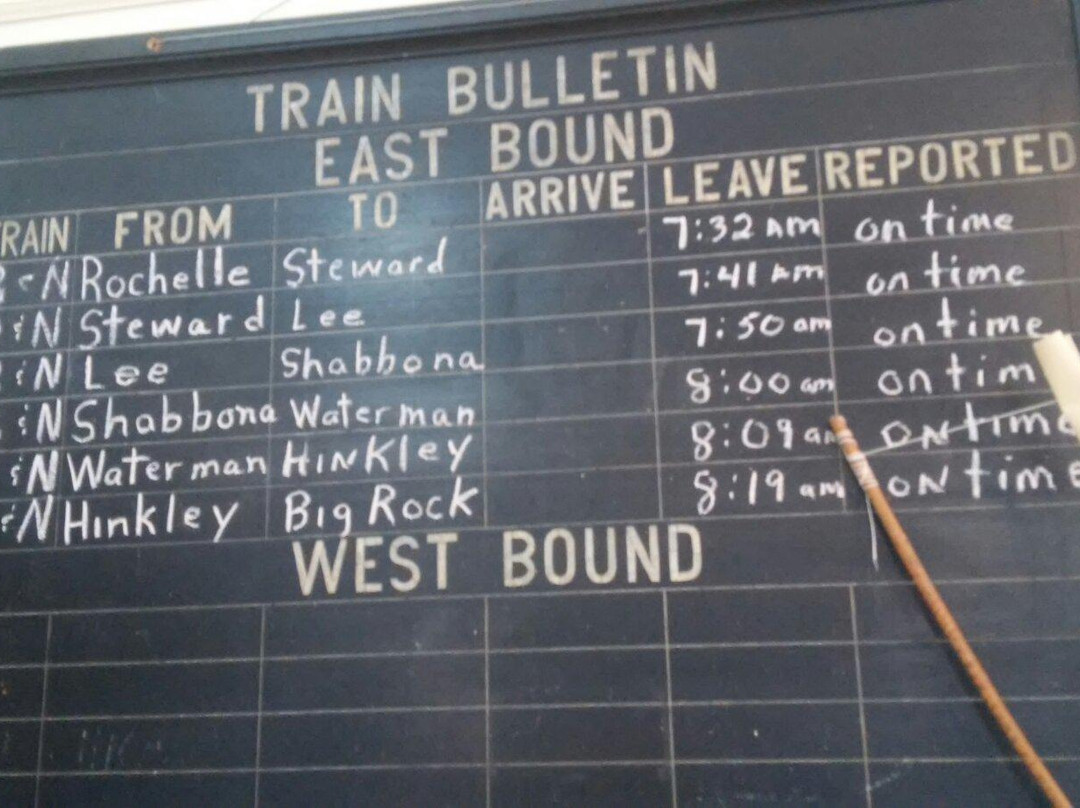 TRAIN BULLETIN
EAST BOUND
TRAIN FROM TO ARRIVE LEAVE REPORTED
N Rochelle Steward 7:32 AM on time
&N Steward Lee 7:41 AM on time
&N Lee Shabbona 7:50 am on time
&N Shabbona Waterman 8:00 am on tim
&N Waterman HINKley 8:09 am ON time
&N Hinkley Big Rock 8:19 am ON time
WEST BOUND